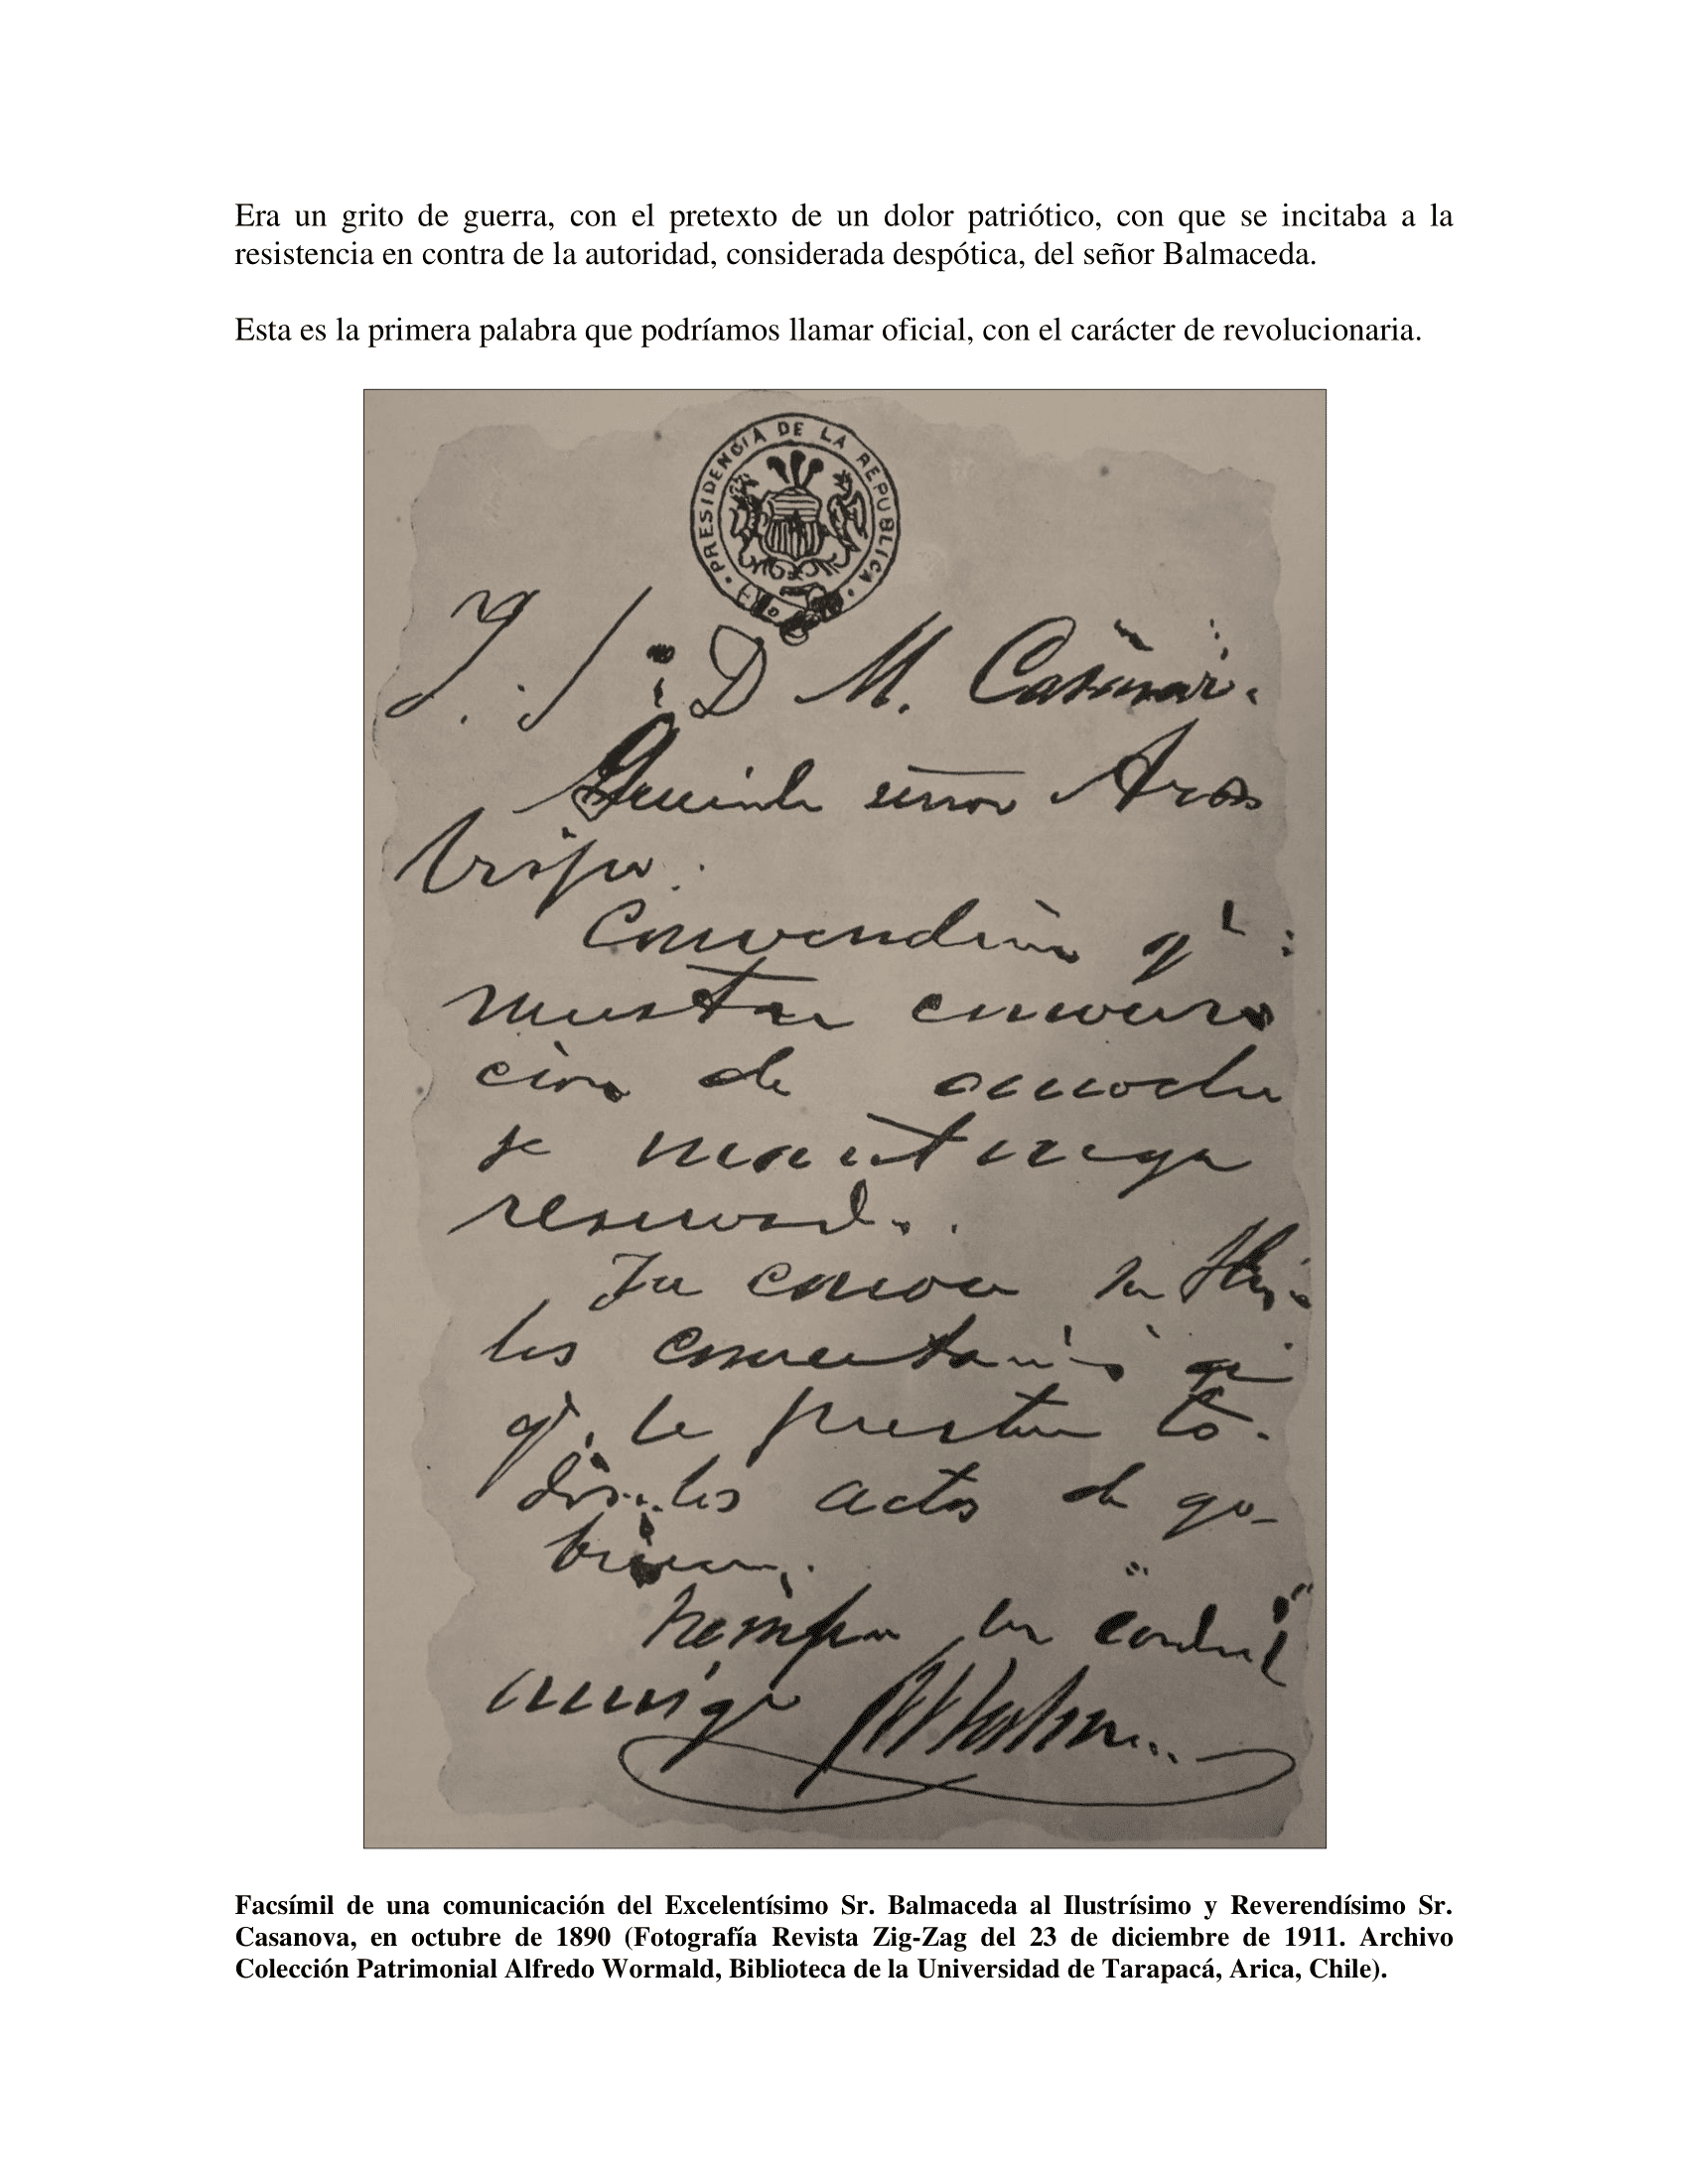 Era un grito de guerra, con el pretexto de un dolor patriótico, con que se incitaba a la
resistencia en contra de la autoridad, considerada despótica, del señor Balmaceda.
Esta es la primera palabra que podríamos llamar oficial, con el carácter de revolucionaria.
PRESIDENCIA DE LA REPUBLICA
D M. Casanova.
señor Arzo
bispo:
Convendría qe
nuestra conversa
ción de anoche
se mantenga
reservada.
Ya conoce su
los comentarios a
qe. se prestan to-
dos los actos de go-
bierno.
Siempre su cordial
amigo
Facsímil de una comunicación del Excelentísimo Sr. Balmaceda al Ilustrísimo y Reverendísimo Sr.
Casanova, en octubre de 1890 (Fotografía Revista Zig-Zag del 23 de diciembre de 1911. Archivo
Colección Patrimonial Alfredo Wormald, Biblioteca de la Universidad de Tarapacá, Arica, Chile).